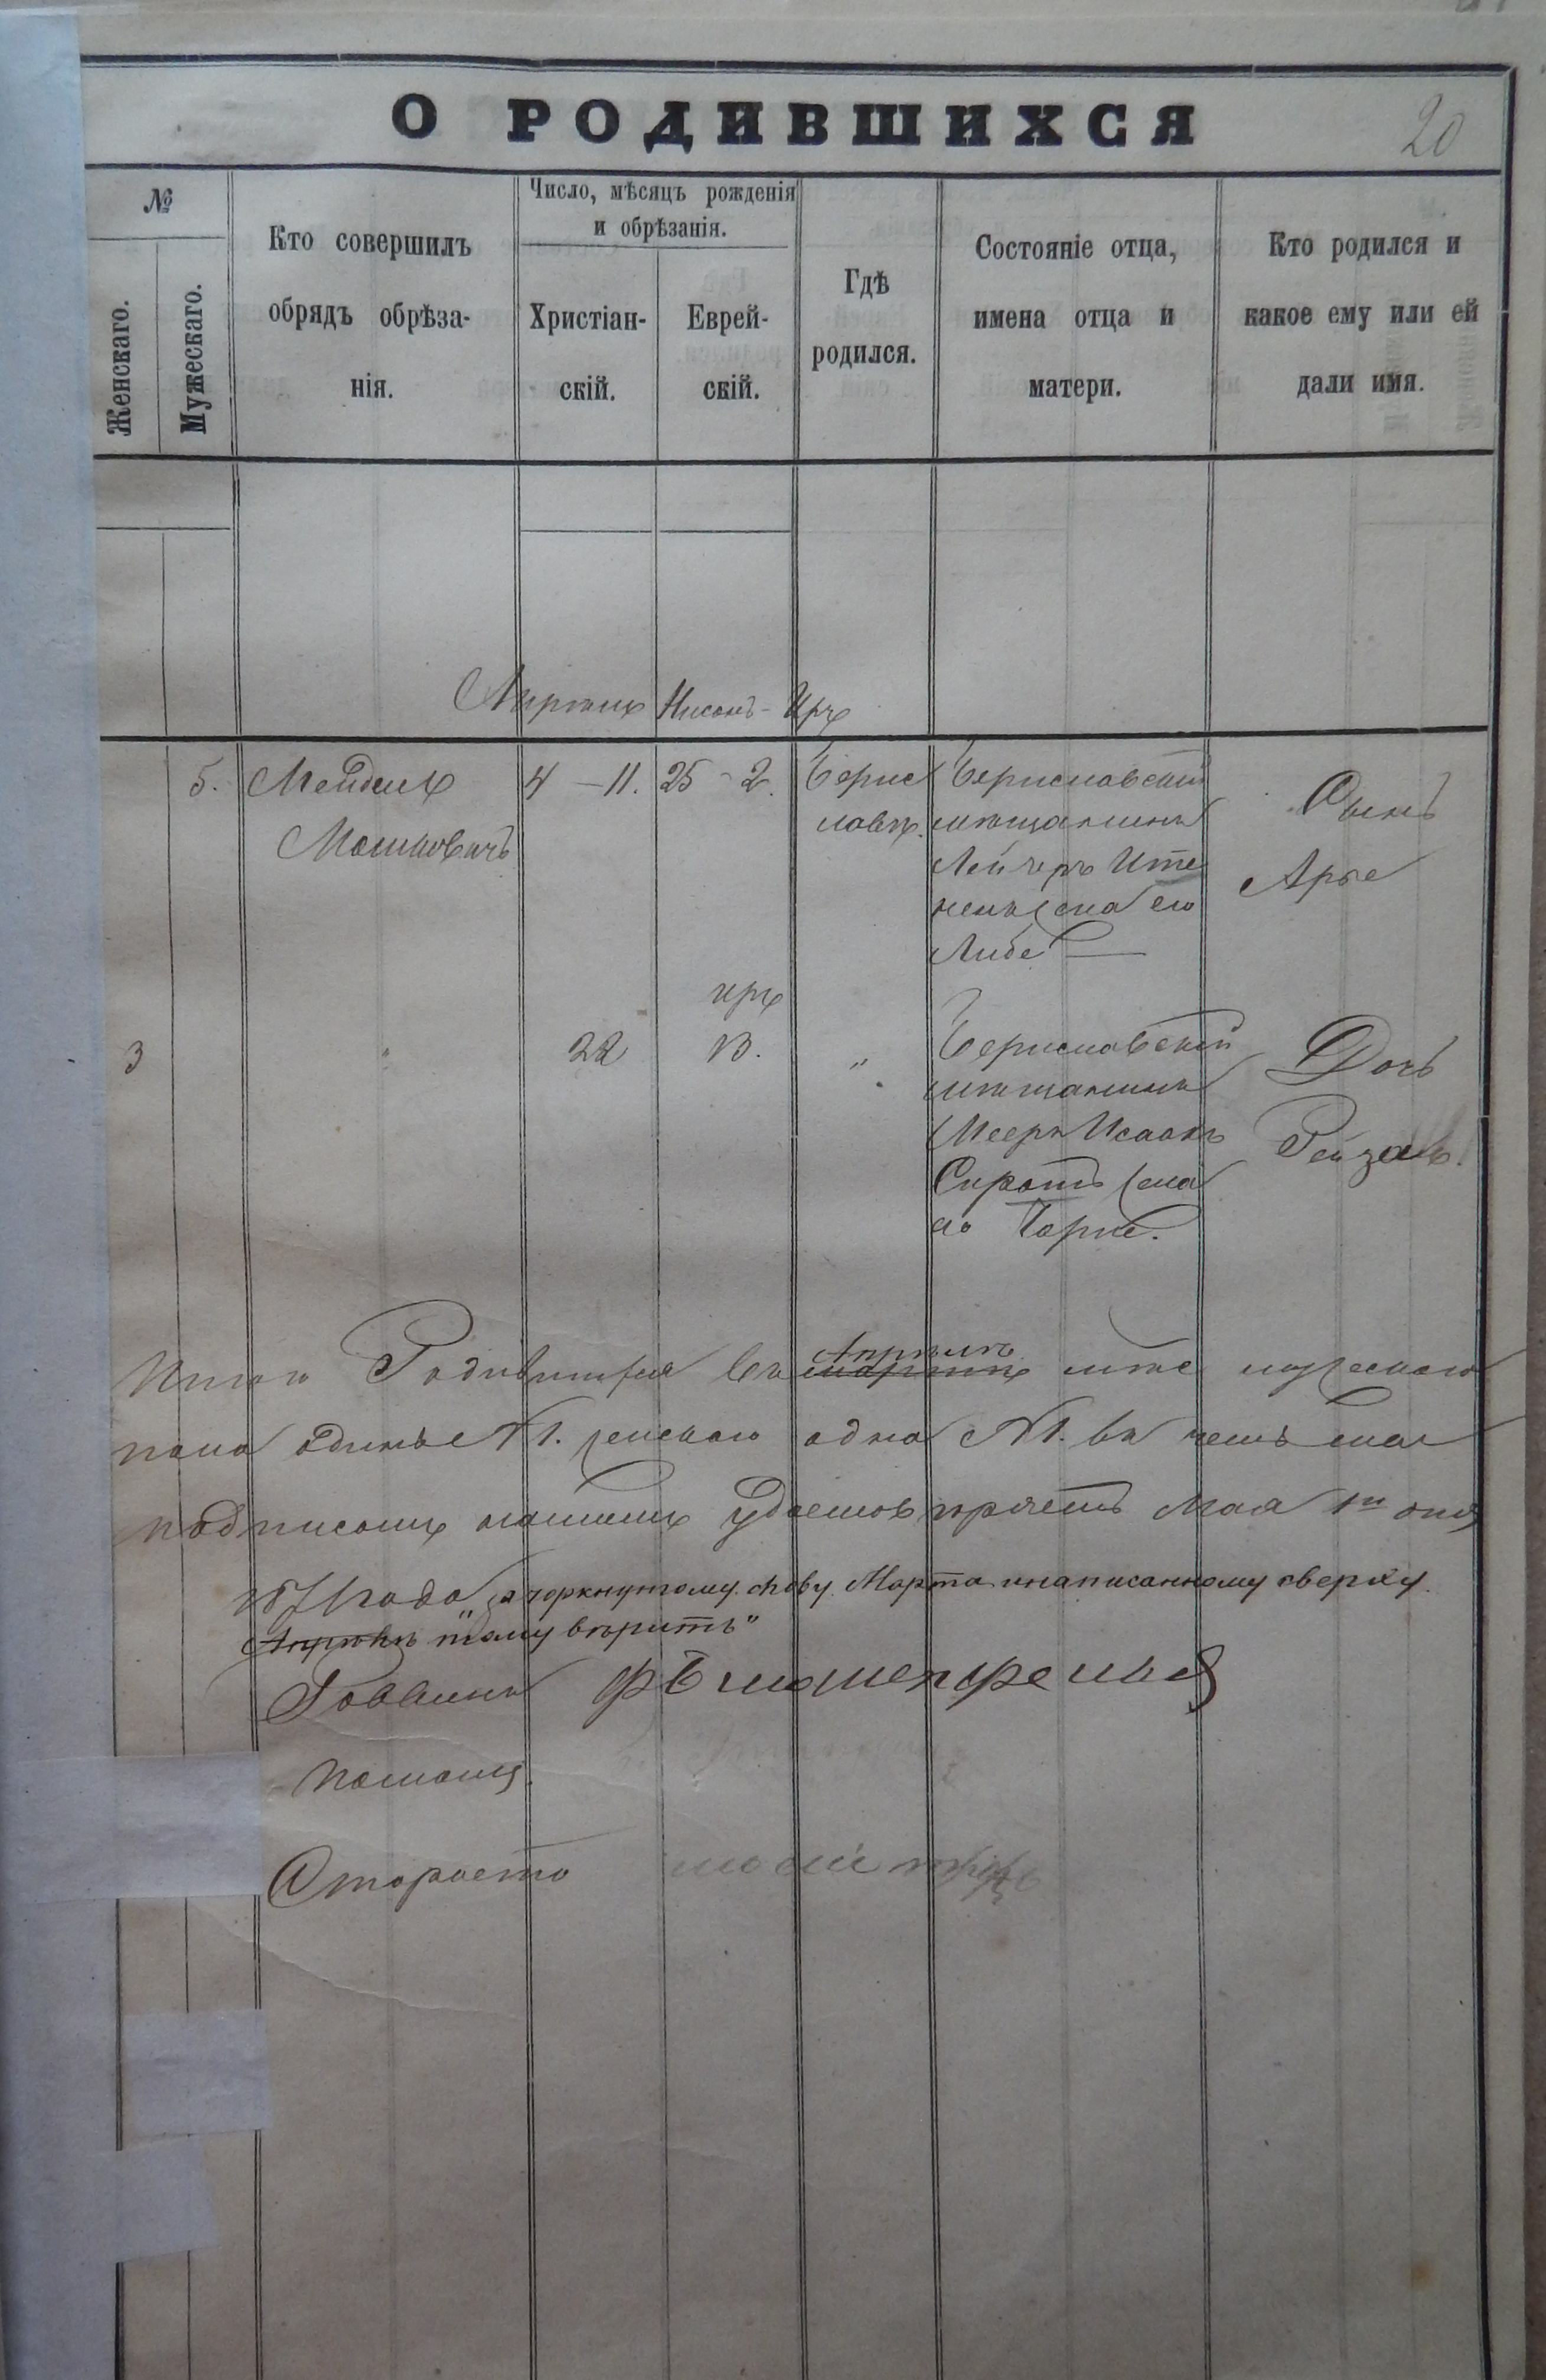 О РОДИВШИХСЯ
20
№
Женскаго.
Мужескаго.
Кто совершилъ
обрядъ обрѣза-
нія.
Число, мѣсяцъ рожденія
и обрѣзанія.
Христіан-
скій.
Еврей-
скій.
Гдѣ
родился.
Состояніе отца,
имена отца и
матери.
Кто родился и
какое ему или ей
дали имя.
Нисонъ - Иръ
5.
Мендель
Мошковичъ
4 - 11.
25 - 2.
Берис
лавѣ.
Бериславскій
мѣщанинъ
жена его
Либе
Сынъ
Арье
3
22
иръ
13.
"
Бериславскій
мѣщанинъ
Мееръ Исаакъ
Сиротъ жена
его
Дочь
Рейзель.
Итого Родившихся въ мартѣ Апрѣлѣ м-цѣ мужескаго
пола одинъ №1. женскаго одна №1. въ чемъ
подписомъ нашимъ удостовѣряемъ Мая 1го дня
1871 года зачеркнутому слову Марта и написанному сверху
Апрѣль "тому вѣрить"
Раввинъ
Помощ.
Староста